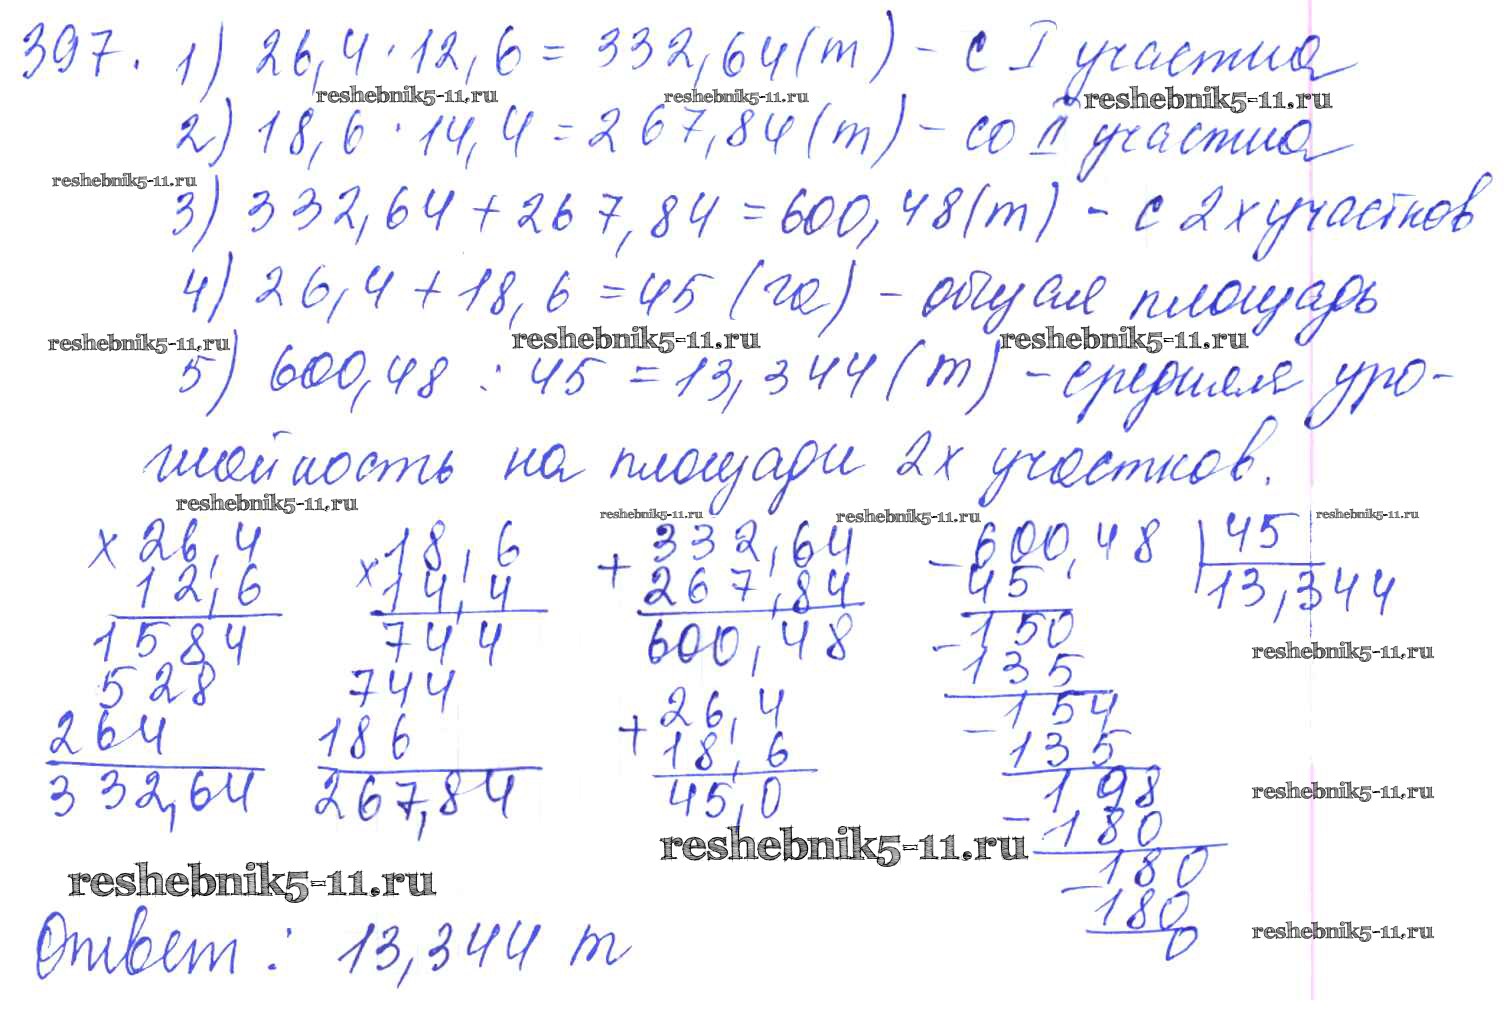 397. 1) 26,4 · 12,6 = 332,64 (т) - с I участка
reshebnik5-11.ru reshebnik5-11.ru reshebnik5-11.ru
2) 18,6 · 14,4 = 267,84 (т) - со II участка
reshebnik5-11.ru
3) 332,64 + 267,84 = 600,48 (т) - с 2х участков
4) 26,4 + 18,6 = 45 (га) - общая площадь
reshebnik5-11.ru reshebnik5-11.ru reshebnik5-11.ru
5) 600,48 : 45 = 13,344 (т) - средняя уро-
жайность на площади 2х участков.
reshebnik5-11.ru reshebnik5-11.ru reshebnik5-11.ru reshebnik5-11.ru
× 26,4
12,6
1584
528
264
332,64
× 18,6
14,4
744
744
186
267,84
+ 332,64
267,84
600,48
+ 26,4
18,6
45,0
- 600,48 | 45
45 13,344
- 150
135
- 154
135
198
- 180
180
- 180
0
reshebnik5-11.ru
reshebnik5-11.ru
reshebnik5-11.ru
reshebnik5-11.ru
reshebnik5-11.ru
Ответ: 13,344 т